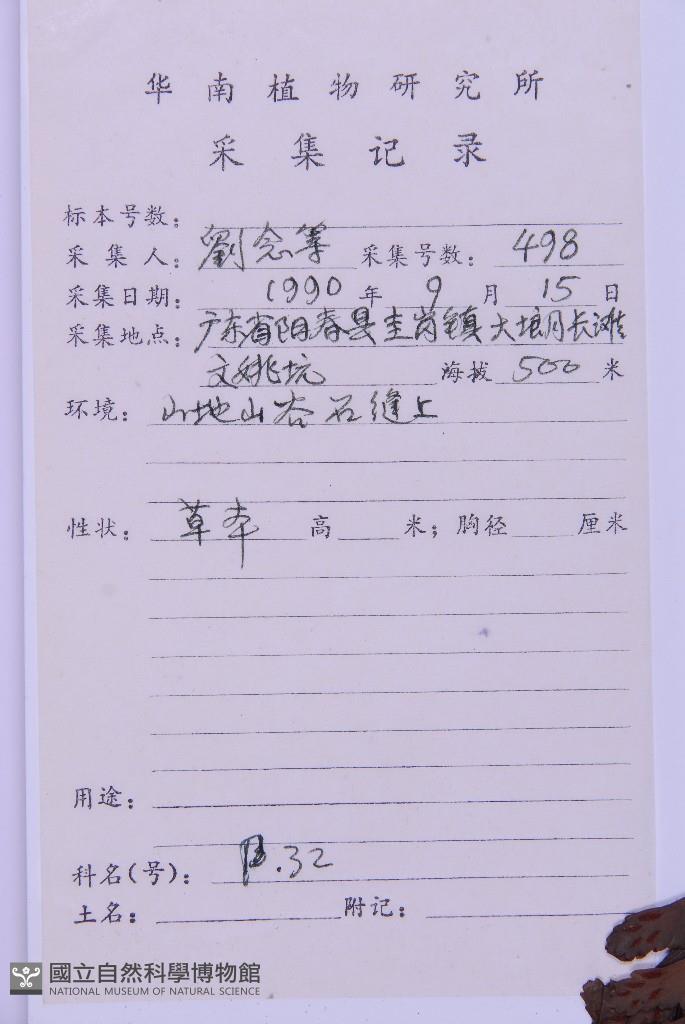 华南植物研究所
采集记录
标本号数：
采集人： 劉念等 采集号数： 498
采集日期： 1990 年 9 月 15 日
采集地点： 广东省阳春县圭岗镇大垠月长滩
文姚坑 海拔 500 米
环境： 山地山谷石缝上
性状： 草本 高 米； 胸径 厘米
用途：
科名(号)： P.32
土名： 附记：
國立自然科學博物館
NATIONAL MUSEUM OF NATURAL SCIENCE